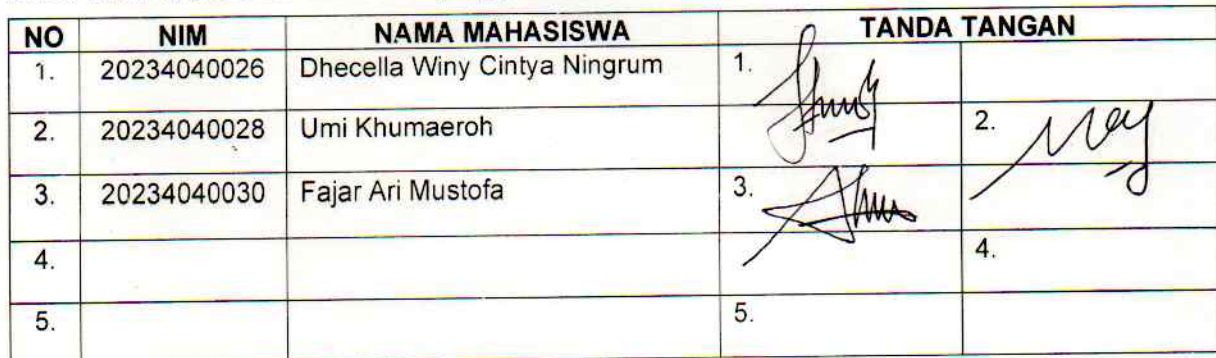 NO NIM NAMA MAHASISWA TANDA TANGAN
1. 20234040026 Dhecella Winy Cintya Ningrum 1.
2. 20234040028 Umi Khumaeroh 2.
3. 20234040030 Fajar Ari Mustofa 3.
4. 4.
5. 5.